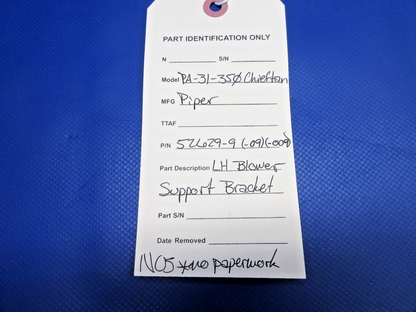 PART IDENTIFICATION ONLY
N S/N
Model PA-31-350 Chieftan
MFG Piper
TTAF
P/N 52629-9 (-09)(-009)
Part Description LH Blower
Support Bracket
Part S/N
Date Removed
NOS no paperwork